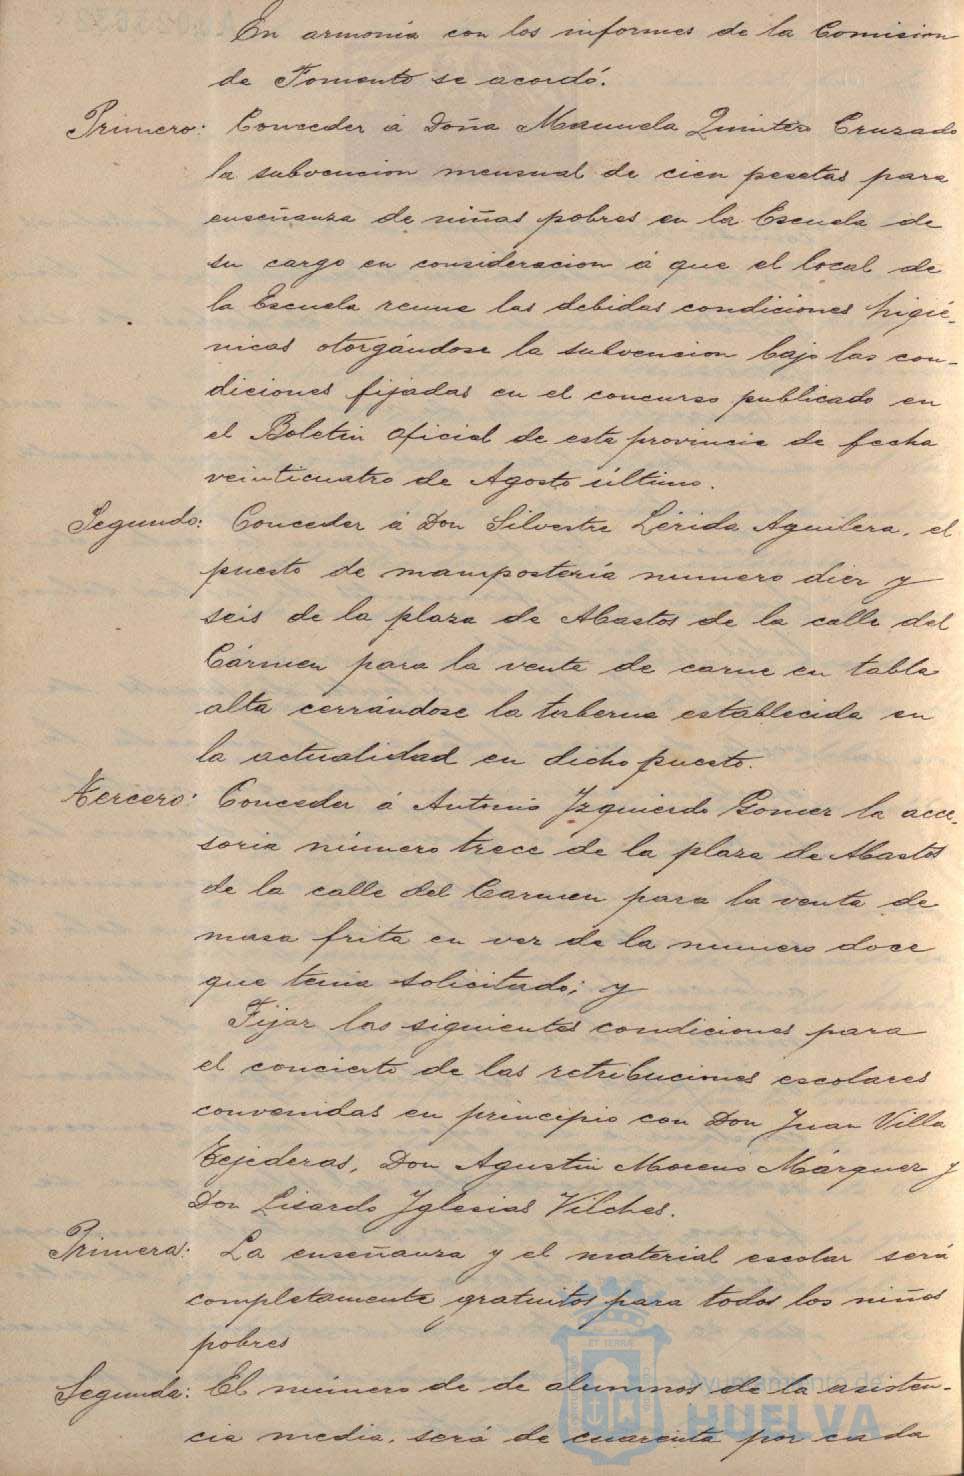 En armonia con los informes de la Comision
de Fomento se acordó.
Primero: Conceder á Doña Manuela Quintero Cruzado
la subvencion mensual de cien pesetas para
enseñanza de niñas pobres en la Escuela de
su cargo en consideracion á que el local de
la Escuela reune las debidas condiciones higié-
nicas otorgándose la subvencion bajo las con-
diciones fijadas en el concurso publicado en
el Boletin oficial de esta provincia de fecha
veinticuatro de Agosto último.
Segundo: Conceder á Don Silvestre Lérida Aguilera, el
puesto de mampostería numero diez y
seis de la plaza de Abastos de la calle del
Cármen para la venta de carne en tabla
alta cerrándose la terberna establecida en
la actualidad en dicho puesto.
Tercero: Conceder á Antonio Izquierdo Gomez la acce-
soria número trece de la plaza de Abastos
de la calle del Carmen para la venta de
masa frita en vez de la numero doce
que tenia solicitado; y
Fijar las siguientes condiciones para
el concierto de las retribuciones escolares
convenidas en principio con Don Juan Villa
Tejederas, Don Agustin Moreno Márquez y
Don Lisardo Iglesias Vilches.
Primera: La enseñanza y el material escolar será
completamente gratuitos para todos los niños
pobres
Segunda: El número de de alumnos de la asisten-
cia media, será de cuarenta por cada
Ayuntamiento de
HUELVA